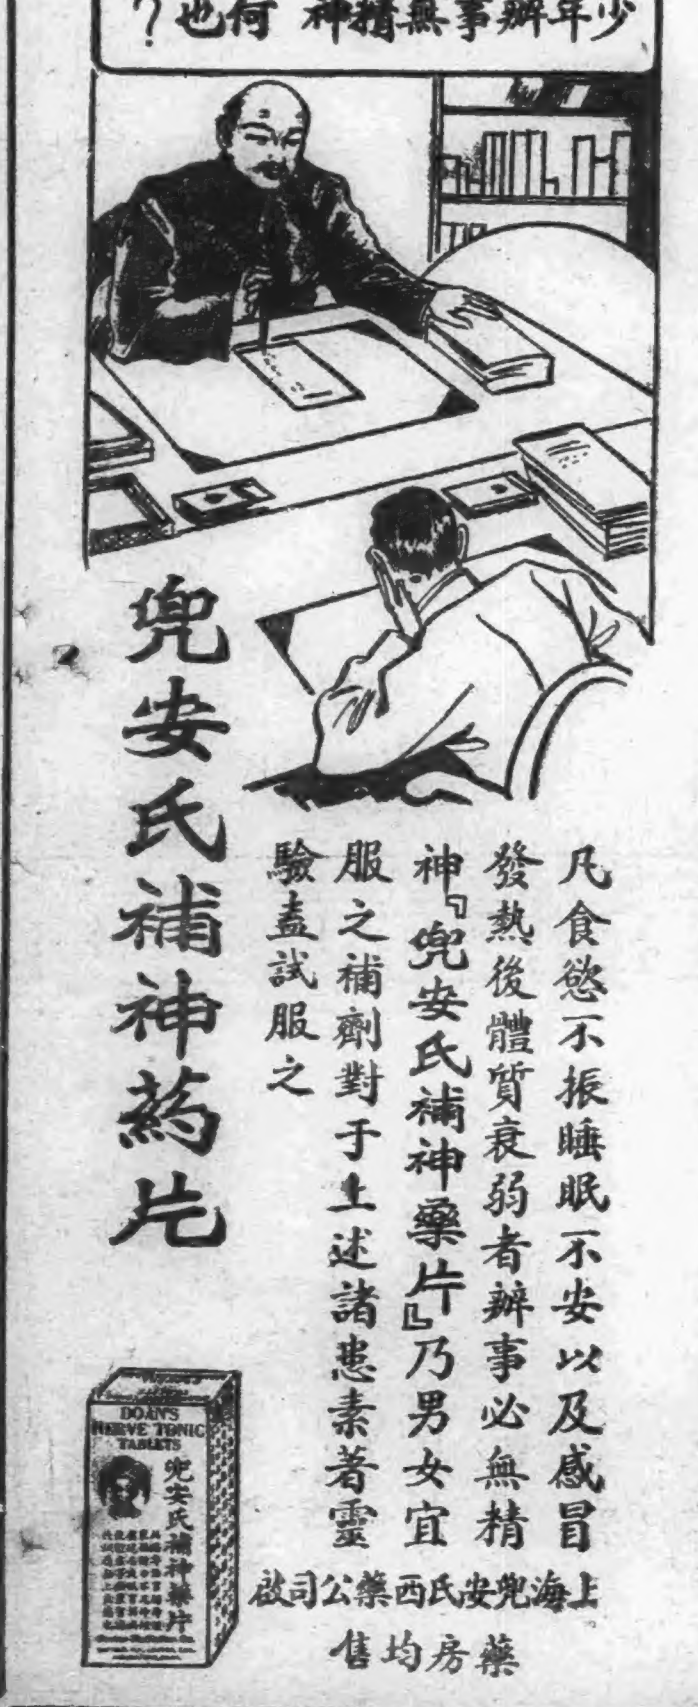 少年辦事無精神 何也？
凡食慾不振睡眠不安以及感冒
發熱後體質衰弱者辦事必無精
神『兜安氏補神藥片』乃男女宜
服之補劑對于上述諸患素著靈
驗盍試服之
兜安氏補神药片
上海兜安氏西藥公司啟
藥房均售
DOAN'S
NERVE TONIC
TABLETS
兜安氏補神藥片